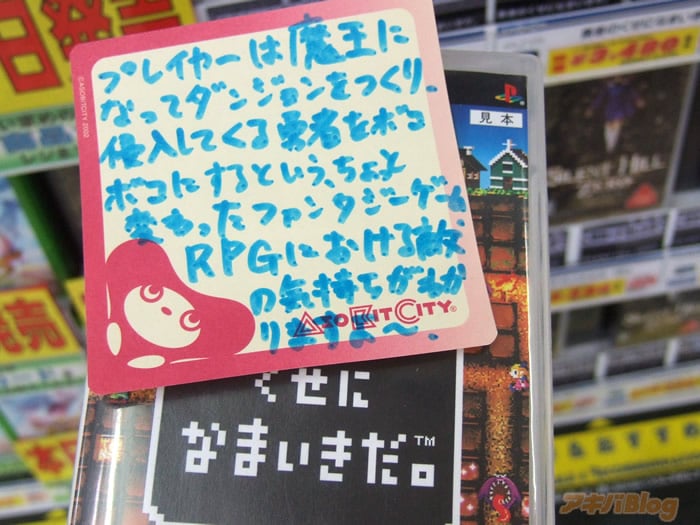 プレイヤーは魔王に
なってダンジョンをつくり、
侵入してくる勇者をボコ
ボコにするという、ちょと
変わったファンタジーゲーム
RPGにおける敵
の気持ちがわか
りますよ〜
ASOBITCITY®
©ASOBITCITY 2002
見本
くせに
なまいきだ。™
¥3,480!
SILENT HILL
ZERO
発売
おすすめ
アキバBlog